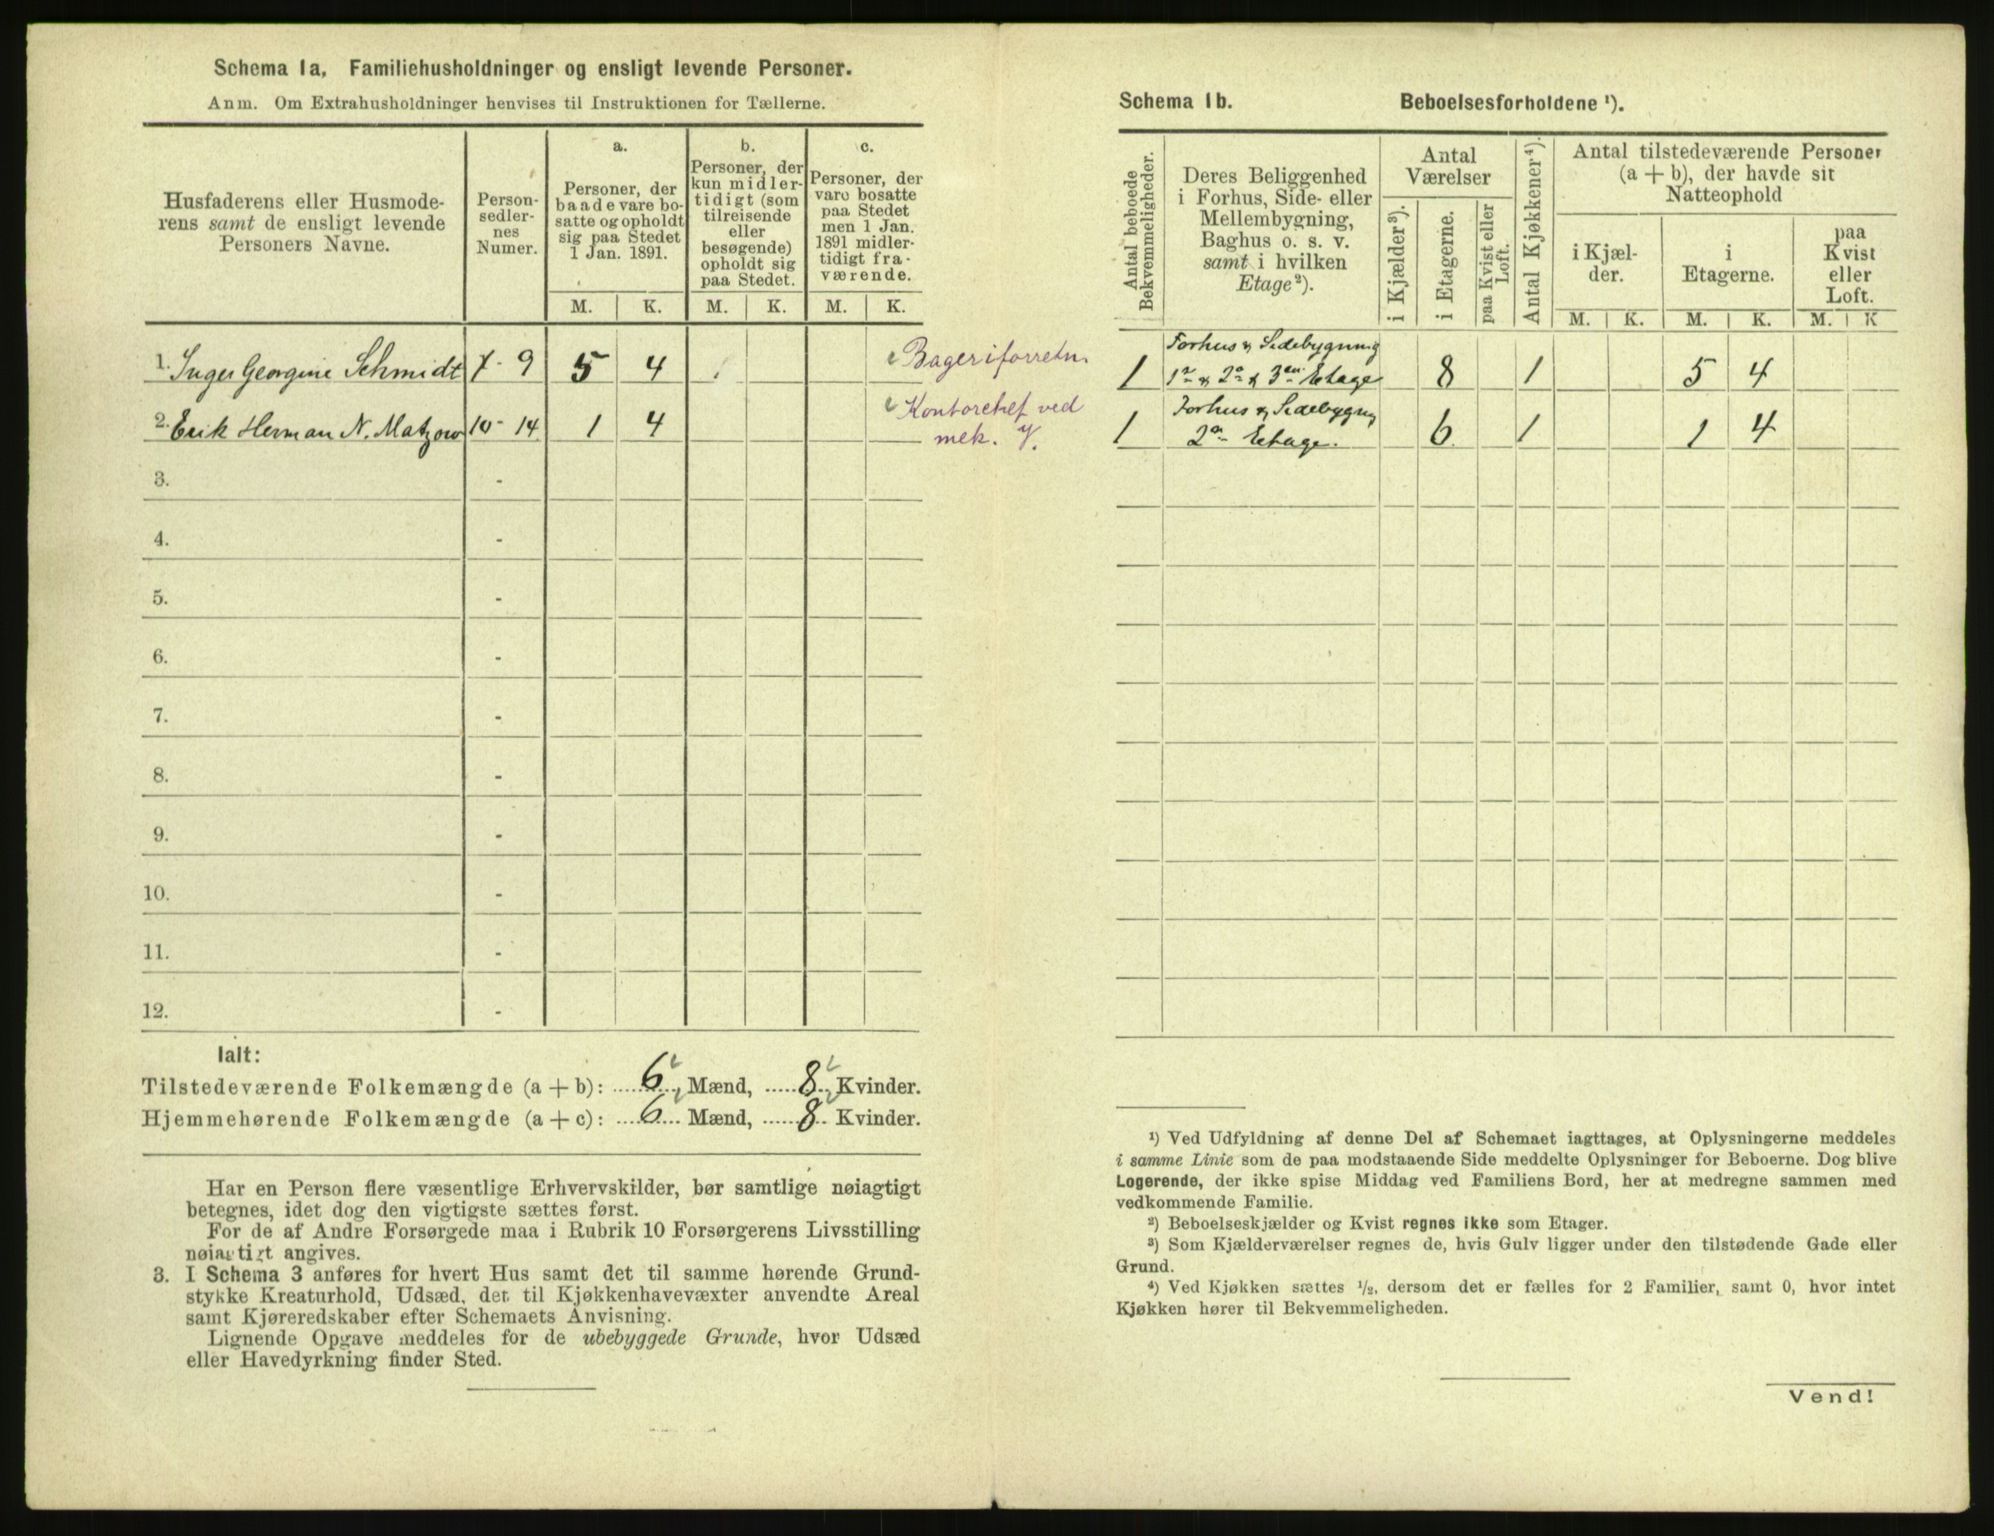 Schema 1a, Familiehusholdninger og ensligt levende Personer.
Anm. Om Extrahusholdninger henvises til Instruktionen for Tællerne.
Husfaderens eller Husmode-
rens samt de ensligt levende
Personers Navne.
Person-
sedler-
nes
Numer.
a.
Personer, der
baade vare bo-
satte og opholdt
sig paa Stedet
1 Jan. 1891.
b.
Personer, der
kun midler-
tidigt (som
tilreisende
eller
besøgende)
opholdt sig
paa Stedet.
c.
Personer, der
vare bosatte
paa Stedet
men 1 Jan.
1891 midler-
tidigt fra-
værende.
M. K. M. K. M. K.
1. Inger Georgine Schmidt 7 - 9 5 4 Bageriforretn.
2. Erik Herman N. Matzow 10 - 14 1 4 Kontorchef ved
mek. V.
3. -
4. -
5. -
6. -
7. -
8. -
9. -
10. -
11. -
12. -
Ialt:
Tilstedeværende Folkemængde (a + b): 6 Mænd, 8 Kvinder.
Hjemmehørende Folkemængde (a + c): 6 Mænd, 8 Kvinder.
Har en Person flere væsentlige Erhvervskilder, bør samtlige nøiagtigt
betegnes, idet dog den vigtigste sættes først.
For de af Andre Forsørgede maa i Rubrik 10 Forsørgerens Livsstilling
nøiagtigt angives.
3. I Schema 3 anføres for hvert Hus samt det til samme hørende Grund-
stykke Kreaturhold, Udsæd, det til Kjøkkenhavevæxter anvendte Areal
samt Kjøreredskaber efter Schemaets Anvisning.
Lignende Opgave meddeles for de ubebyggede Grunde, hvor Udsæd
eller Havedyrkning finder Sted.
Schema 1b. Beboelsesforholdene ¹).
Antal beboede
Bekvemmeligheder.
Deres Beliggenhed
i Forhus, Side- eller
Mellembygning,
Baghus o. s. v.
samt i hvilken
Etage²).
Antal
Værelser
i Kjælder³).
i Etagerne.
paa Kvist eller
Loft.
Antal Kjøkkener⁴).
Antal tilstedeværende Personer
(a + b), der havde sit
Natteophold
i Kjæl-
der.
i
Etagerne.
paa
Kvist
eller
Loft.
M. K. M. K. M. K
Forhus & Sidebygning
1 1ste & 2den & 3die Etage 8 1 5 4
Forhus & Sidebygng
1 2den Etage. 6 1 1 4
¹) Ved Udfyldning af denne Del af Schemaet iagttages, at Oplysningerne meddeles
i samme Linie som de paa modstaaende Side meddelte Oplysninger for Beboerne. Dog blive
Logerende, der ikke spise Middag ved Familiens Bord, her at medregne sammen med
vedkommende Familie.
²) Beboelseskjælder og Kvist regnes ikke som Etager.
³) Som Kjælderværelser regnes de, hvis Gulv ligger under den tilstødende Gade eller
Grund.
⁴) Ved Kjøkken sættes ½, dersom det er fælles for 2 Familier, samt 0, hvor intet
Kjøkken hører til Bekvemmeligheden.
Vend!